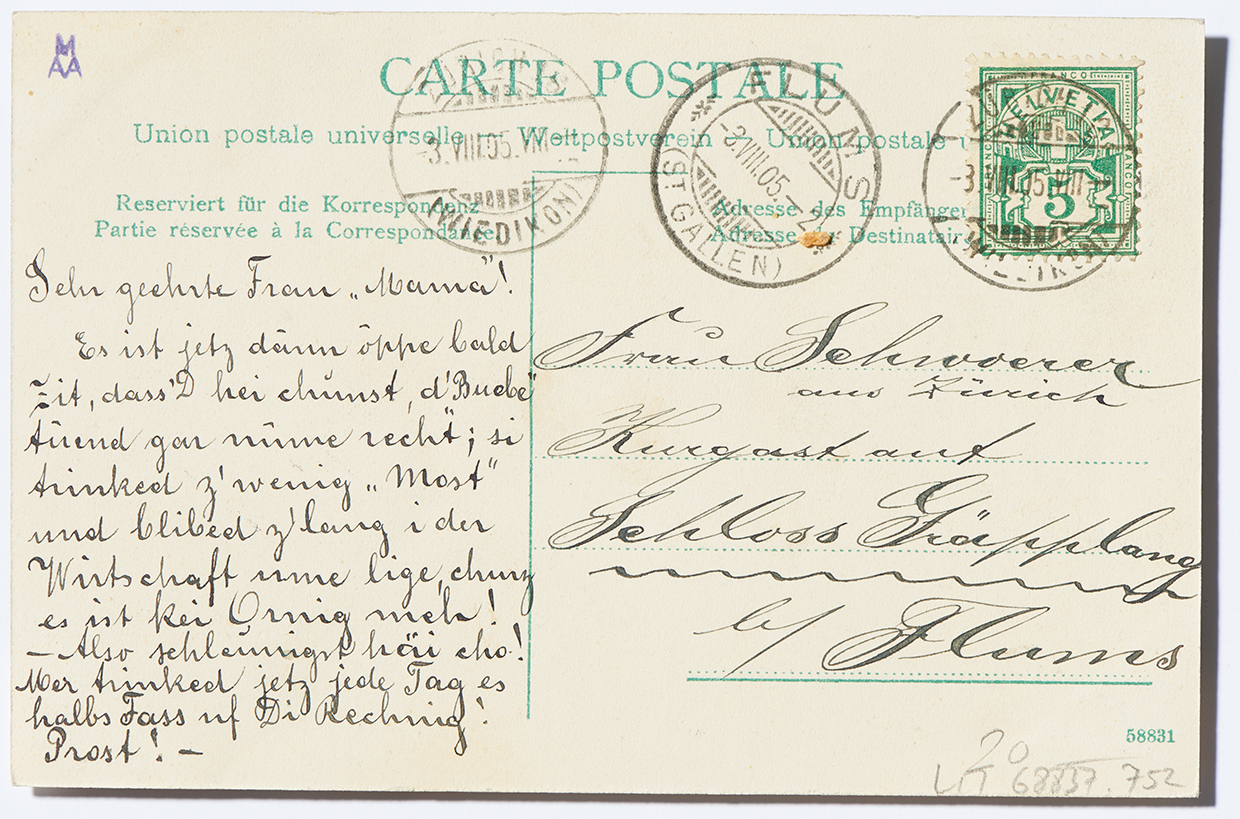 M
AA
CARTE POSTALE
Union postale universelle — Weltpostverein — Union postale u
Reserviert für die Korrespondenz
Partie réservée à la Correspondance
Adresse des Empfänger
Adresse du Destinatair
(WIEDIKON)
-3.VIII.05.VIII-
FLUMS
-3.VIII.05.-2
(ST GALLEN)
FRANCO
HELVETIA
5
-3.VIII.05.VIII-
Sehr geehrte Frau „Mama"!
Es ist jetz dänn öppe bald
Zit, dass 'D hei chunst, d'Buebe
tüend gar nüme recht; si
trinked z'wenig „Most"
und blibed z'lang i der
Wirtschaft ume lige, churz
es ist kei Ornig meh!
– Also schleunigst häi cho!
Mer trinked jetz jede Tag es
halbs Fass uf Di Rechnig!
Prost! –
Frau Schwoerer
aus Zürich
Kurgast auf
Schloss Gräpplang
b/ Flums
58831
20
LIT 68837.752